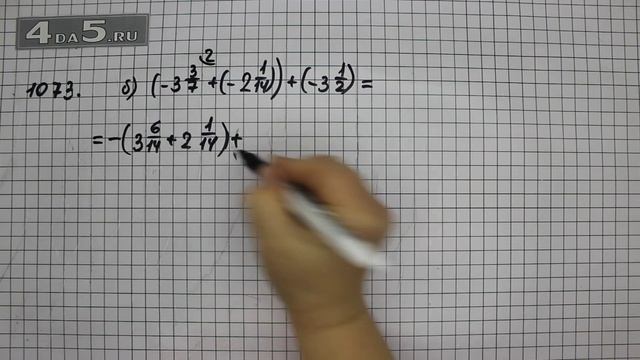 4DA5.RU
1073. б) (-3 3/7 + (-2 1/14)) + (-3 1/2) =
2
= -(3 6/14 + 2 1/14) +